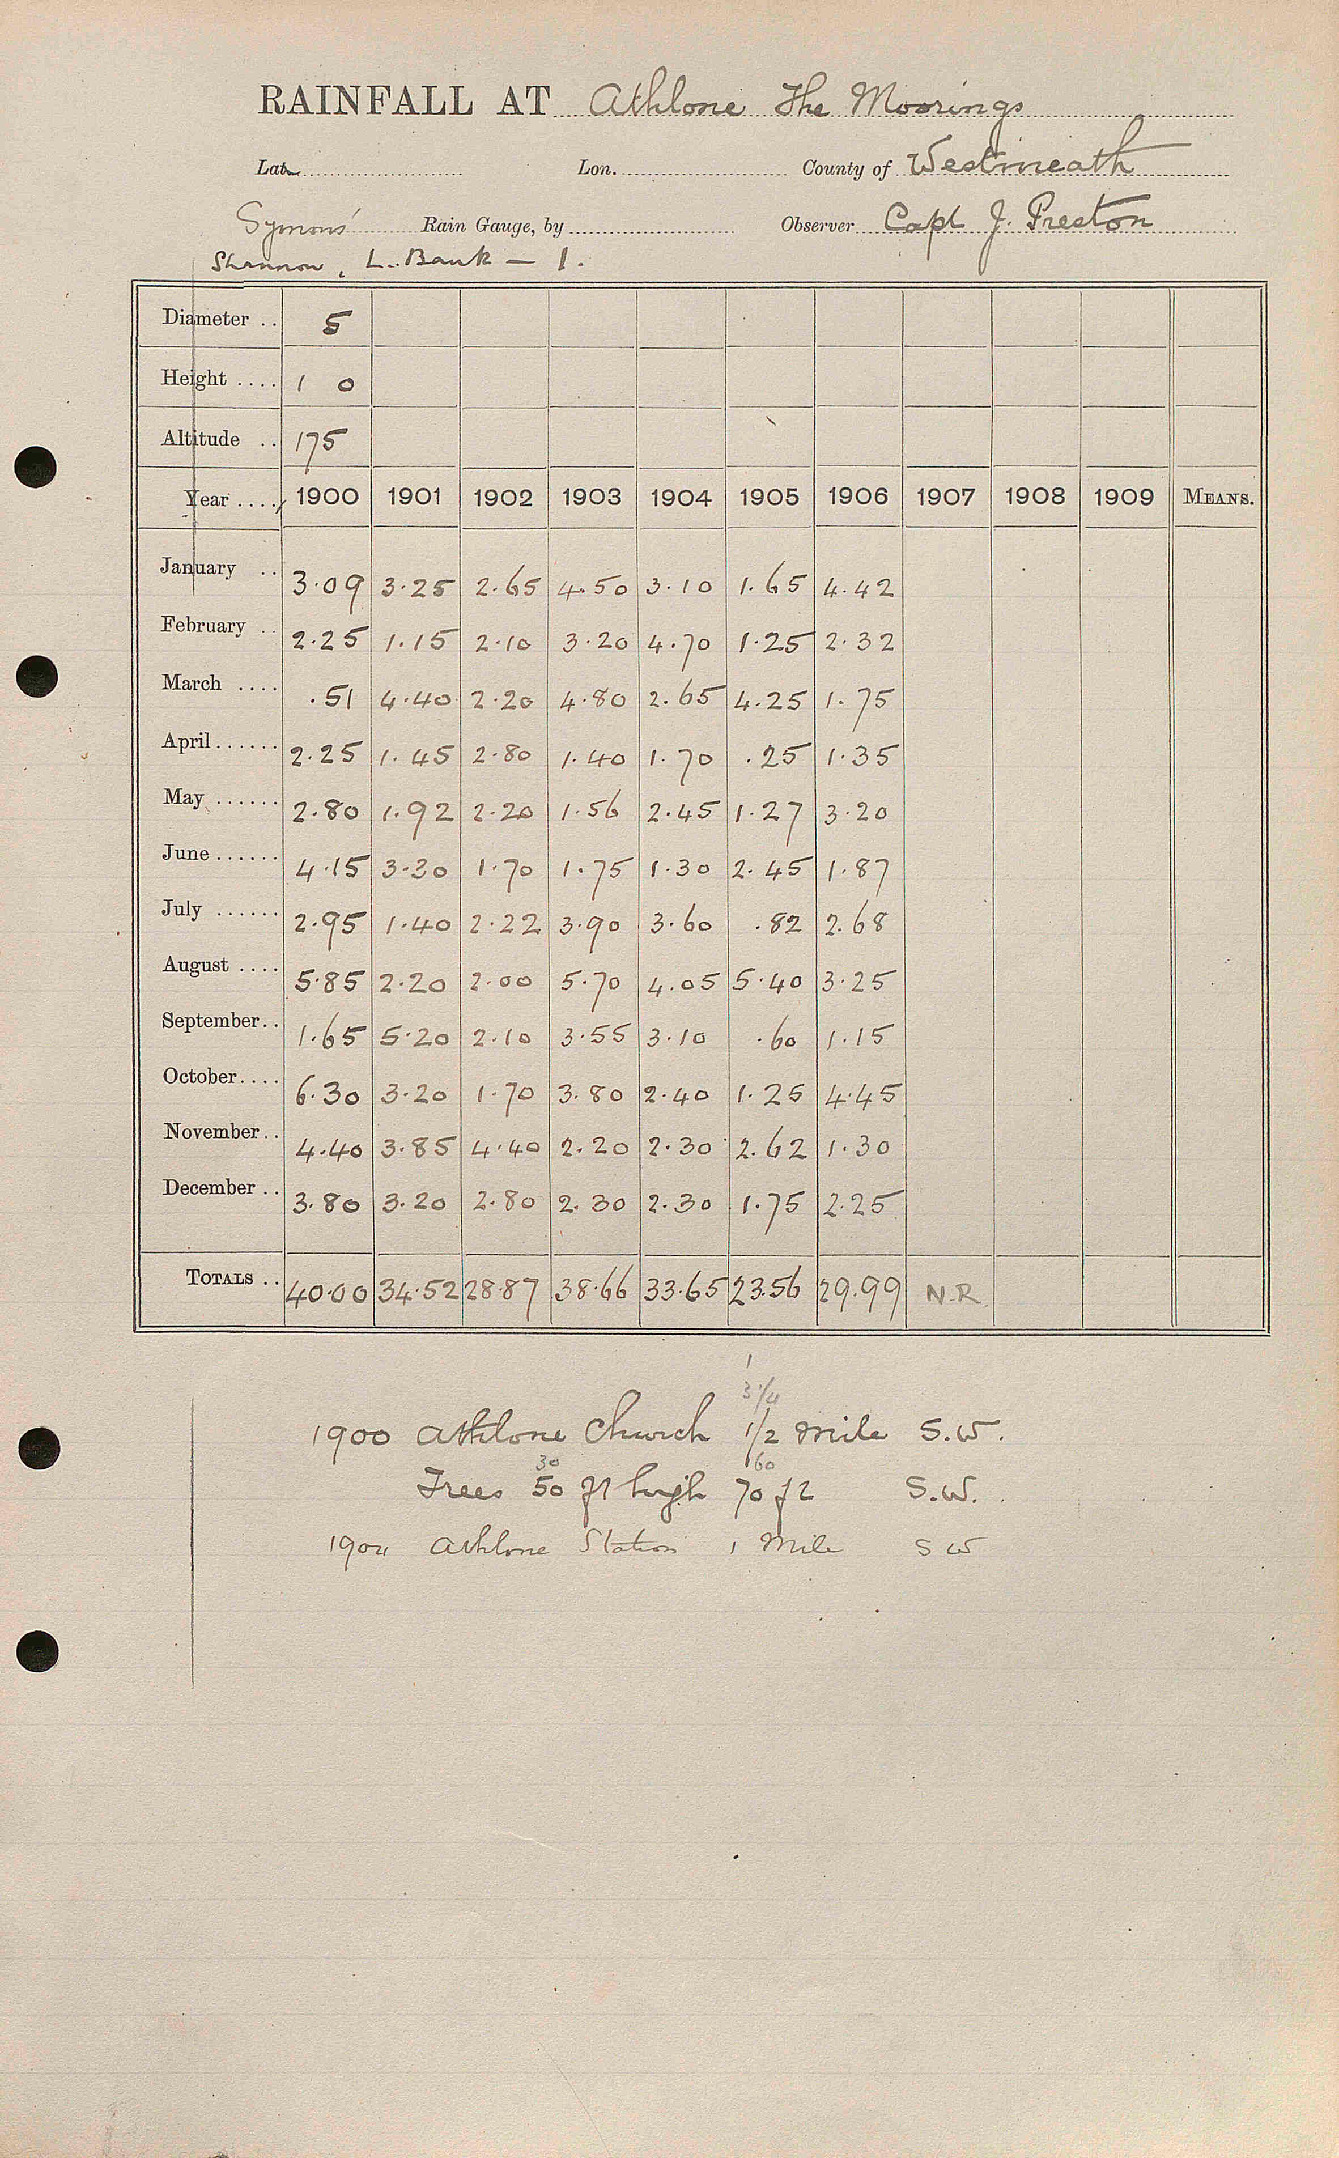 RAINFALL AT Athlone The Moorings
Lat. Lon. County of Westmeath
Symons' Rain Gauge, by Observer Capt J. Preston
Shannon, L. Bank — 1.
Diameter .. 5
Height .... 1 0
Altitude .. 175
Year .... 1900 1901 1902 1903 1904 1905 1906 1907 1908 1909 MEANS.
January .. 3.09 3.25 2.65 4.50 3.10 1.65 4.42
February .. 2.25 1.15 2.10 3.20 4.70 1.25 2.32
March .... .51 4.40 2.20 4.80 2.65 4.25 1.75
April...... 2.25 1.45 2.80 1.40 1.70 .25 1.35
May ...... 2.80 1.92 2.20 1.56 2.45 1.27 3.20
June...... 4.15 3.30 1.70 1.75 1.30 2.45 1.87
July ...... 2.95 1.40 2.22 3.90 3.60 .82 2.68
August .... 5.85 2.20 2.00 5.70 4.05 5.40 3.25
September.. 1.65 5.20 2.10 3.55 3.10 .60 1.15
October.... 6.30 3.20 1.70 3.80 2.40 1.25 4.45
November.. 4.40 3.85 4.40 2.20 2.30 2.62 1.30
December .. 3.80 3.20 2.80 2.30 2.30 1.75 2.25
TOTALS .. 40.00 34.52 28.87 38.66 33.65 23.56 29.99 N.R.
1
3/4
1900 Athlone Church 1/2 mile S.W.
30 60
Trees 50 ft high 70 ft S.W.
1904 Athlone Station 1 Mile S W